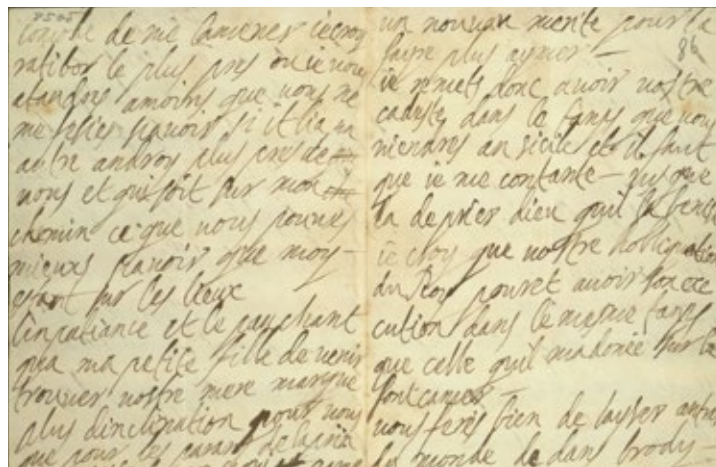 de me lamener ie croy
ratibor le plus pres ou ie vous
atandres amoins que vous ne
me fesies scavoir si il lia un
autre androy plus pres de
vous et qui soit sur mon
chemin ce que vous pouves
mieux scavoir que moy
estant sur les lieux
linpatiance et le panchant
qua ma petite fille de venir
trouver vostre mere marque
plus dinclination pour vous
que pour les parans de
un nouvau merite pour la
faire plus aymer
86
ie remets donc avoir vostre
cadaste dans le tamps que vous
viendres an sicile et il faut
que ie me contante jusque
la de prier dieu quil la benisse
ie croy que vostre
du Roy pouret avoir son exe
cution dans le mesme tamps
que celle quil ma donée sur la
vous feres bien de laysser antrer
le monde de dans brody